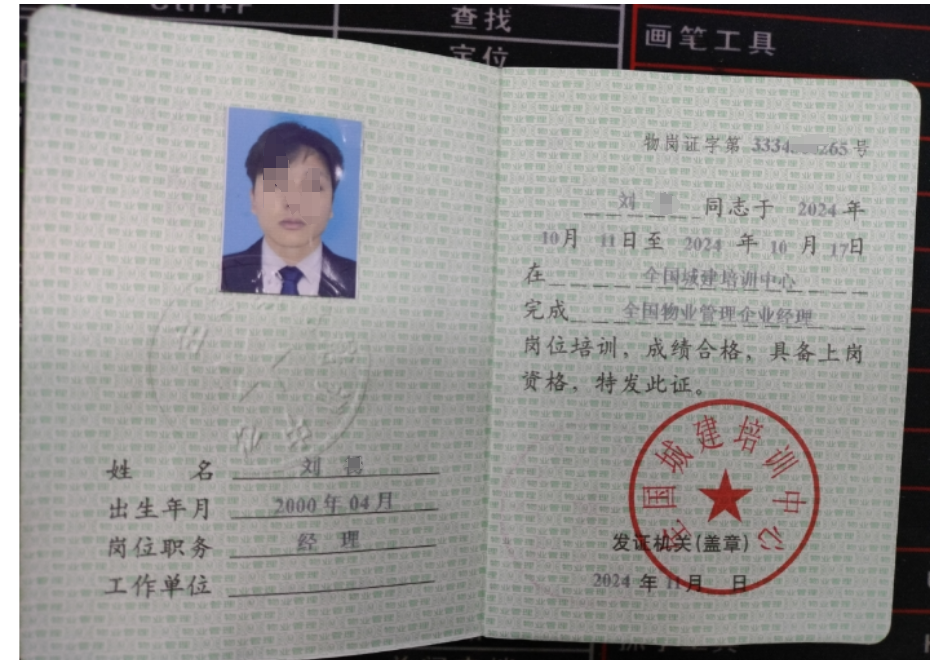 查找
定位
画笔工具
物岗证字第 3334 265 号
刘 同志于 2024 年
10月 11日至 2024 年 10 月 17日
在 全国城建培训中心
完成 全国物业管理企业经理
岗位培训，成绩合格，具备上岗
资格，特发此证。
全国城建培训中心
发证机关(盖章)
2024 年 11月 日
姓 名 刘
出生年月 2000 年 04 月
岗位职务 经 理
工作单位